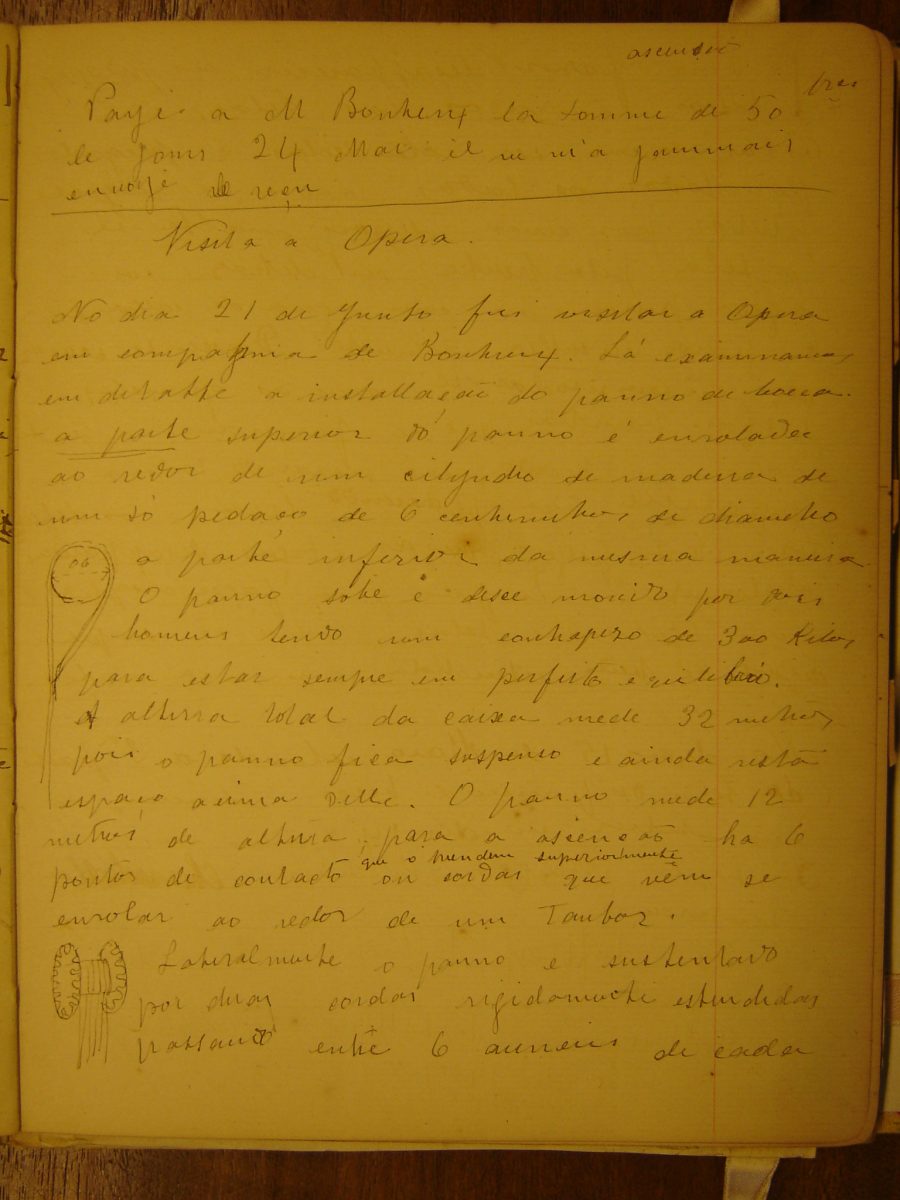 ascensão
frcs
Payé a M Bonheux la somme de 50
le jours 24 Mai il ne m'a jammais
envoyé le reçu
Visita a Opera.
No dia 21 de Junho fui visitar a Opera
em companhia de Bonheux. Lá examinamos
em detalhe a installação do panno de bocca.
a parte superior do panno é enrolada
ao redor de um cilyndro de madeira de
um só pedaço de 6 centimetros de diametro
a parte inferior da mesma maneira
06
O panno sobe e desce movido por dois
homens tendo um contrapezo de 300 Kilos
para estar sempre em perfeito equilibrio.
A altura total da caixa mede 32 metros,
pois o panno fica suspenso e ainda resta
espaço acima delle. O panno mede 12
metros de altura para a ascenção ha 6
que o prendem superiormente
pontos de contacto ou cordas que vêm se
enrolar ao redor de um Tambor.
Lateralmente o panno e sustentado
por duas cordas rigidamente estendidas
passando entre 6 anneis de cada